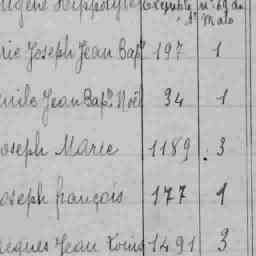 ugène Hippolyte
St Malo
rie Joseph Jean Bapt 197 1
mile Jean Bapt Noël 34 1
oseph Marie 1189 3
oseph françois 177 1
acques Jean Louis 1491 3